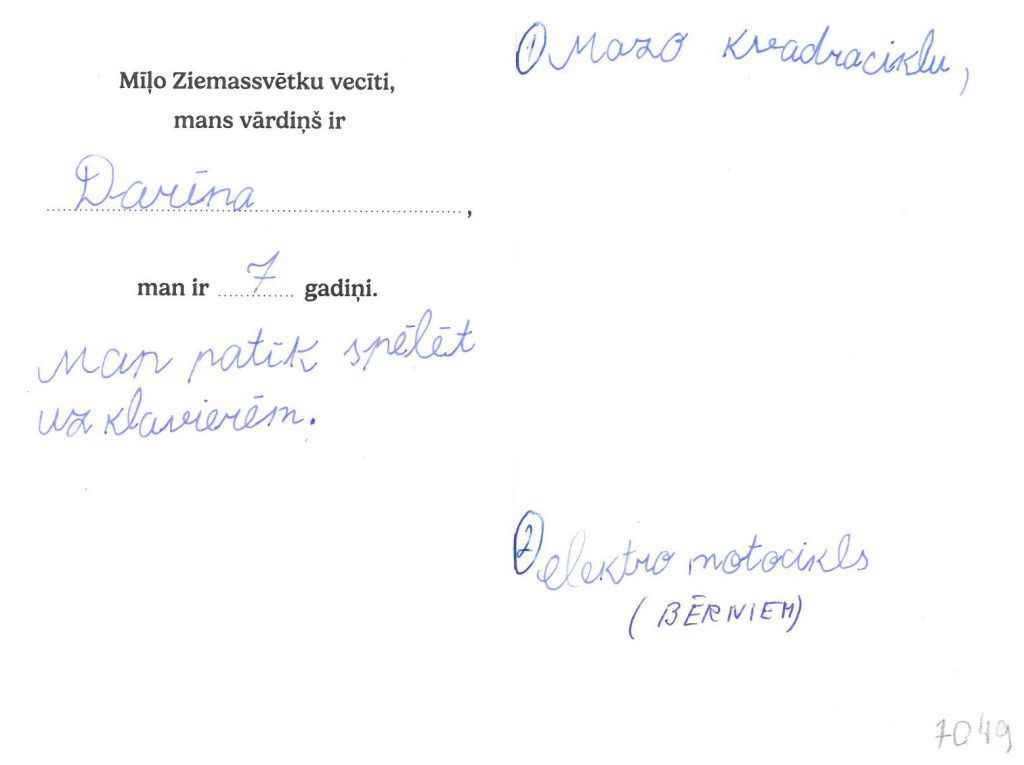 Mīļo Ziemassvētku vecīti,
mans vārdiņš ir
Darīna,
man ir 7 gadiņi.
Man patīk spēlēt
uz klavierēm.
① Mazo kvadraciklu,
② elektro motocikls
(BĒRNIEM)
7049